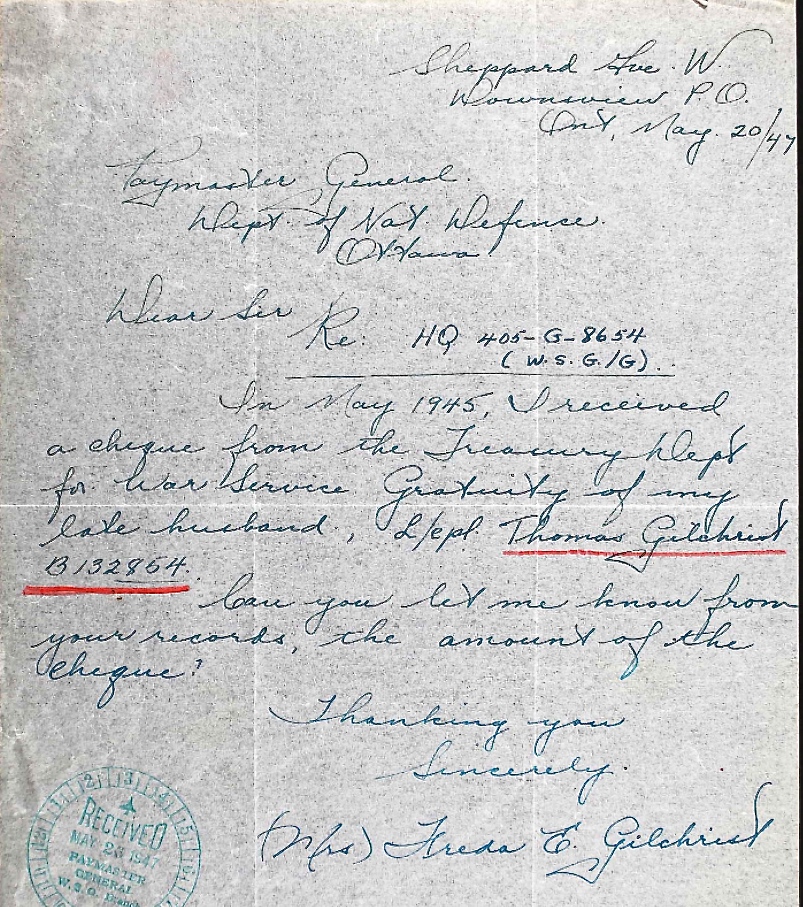 Sheppard Ave. W.
Downsview P.O.
Ont, May. 20/47
Paymaster General.
Dept. of Nat Defence.
Ottawa
Dear Sir
Re: HQ 405-G-8654
(W.S.G./G)..
In May 1945, I received
a cheque from the Treasury Dept
for War Service Gratuity of my
late husband, L/cpl. Thomas Gilchrist
B132854.
Can you let me know from
your records, the amount of the
cheque?
Thanking you
Sincerely.
(Mrs) Freda E. Gilchrist
RECEIVED
MAY 23 1947
PAYMASTER
GENERAL
W.S.G. Branch